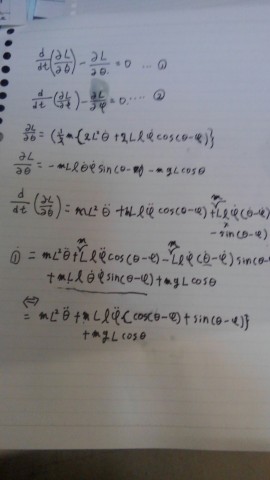 d/dt(∂L/∂θ̇) - ∂L/∂θ = 0 ... ①
d/dt(∂L/∂φ̇) - ∂L/∂φ = 0 .... ②
∂L/∂θ̇ = (½m{2L²θ̇ + 2Llφ̇ cos(θ-φ)}
∂L/∂θ = -mLlθ̇φ̇ sin(θ-φ) - mgL cosθ
d/dt(∂L/∂θ̇) = mL²θ̈ + mLlφ̈ cos(θ-φ) + mLlφ̇(θ̇-
- sin(θ-φ)
① = mL²θ̈ + mLlφ̈ cos(θ-φ) - mLlφ̇(θ̇-φ̇) sin(θ-
+ mLlθ̇φ̇ sin(θ-φ) + mgL cosθ
⇔
= mL²θ̈ + mLlφ̈{cos(θ-φ) + sin(θ-φ)}
+ mgL cosθ